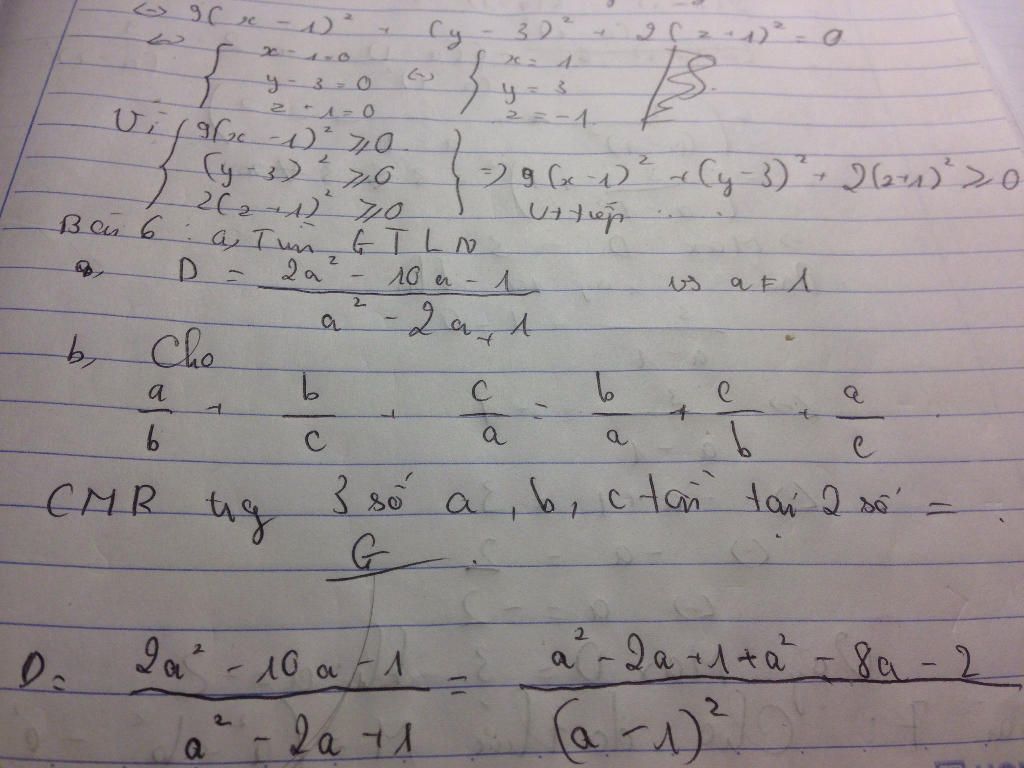 <=> 9(x - 1)² + (y - 3)² + 2(z + 1)² = 0
<=> { x - 1 = 0 { x = 1
y - 3 = 0 <=> y = 3
z - 1 = 0 z = -1
Vì { 9(x - 1)² ≥ 0
(y - 3)² ≥ 0 } => 9(x - 1)² + (y - 3)² + 2(z + 1)² ≥ 0
2(z + 1)² ≥ 0 V+ tiếp ...
Bài 6 : a, Tìm G T L N
a, D = (2a² - 10a - 1) / (a² - 2a + 1) vs a ≠ 1
b, Cho
a/b + b/c + c/a = b/a + c/b + a/c
CMR trg 3 số a, b, c tồn tại 2 số = .
G
D = (2a² - 10a - 1) / (a² - 2a + 1) = (a² - 2a + 1 + a² - 8a - 2) / (a - 1)²